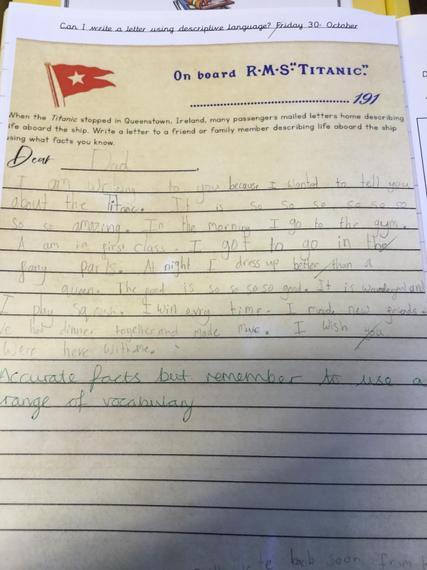 Can I write a letter using descriptive language? Friday 30. October
On board R·M·S "TITANIC".
191
When the Titanic stopped in Queenstown, Ireland, many passengers mailed letters home describing
life aboard the ship. Write a letter to a friend or family member describing life aboard the ship
using what facts you know.
Dear Dad,
I am writing to you because I wanted to tell you
about the Titanic. It is so so so so so so
so so amazing. In the morning I go to the gym.
I am in first class. I got to go in the
fany parts. At night I dress up better than a
queen. The food is so so so so good. It is and
I play . I win evry time. I made new friends.
We hat dinner together and made . I wish you
were here with me.
Accurate facts but remember to use a
range of vocabulary
back soon from